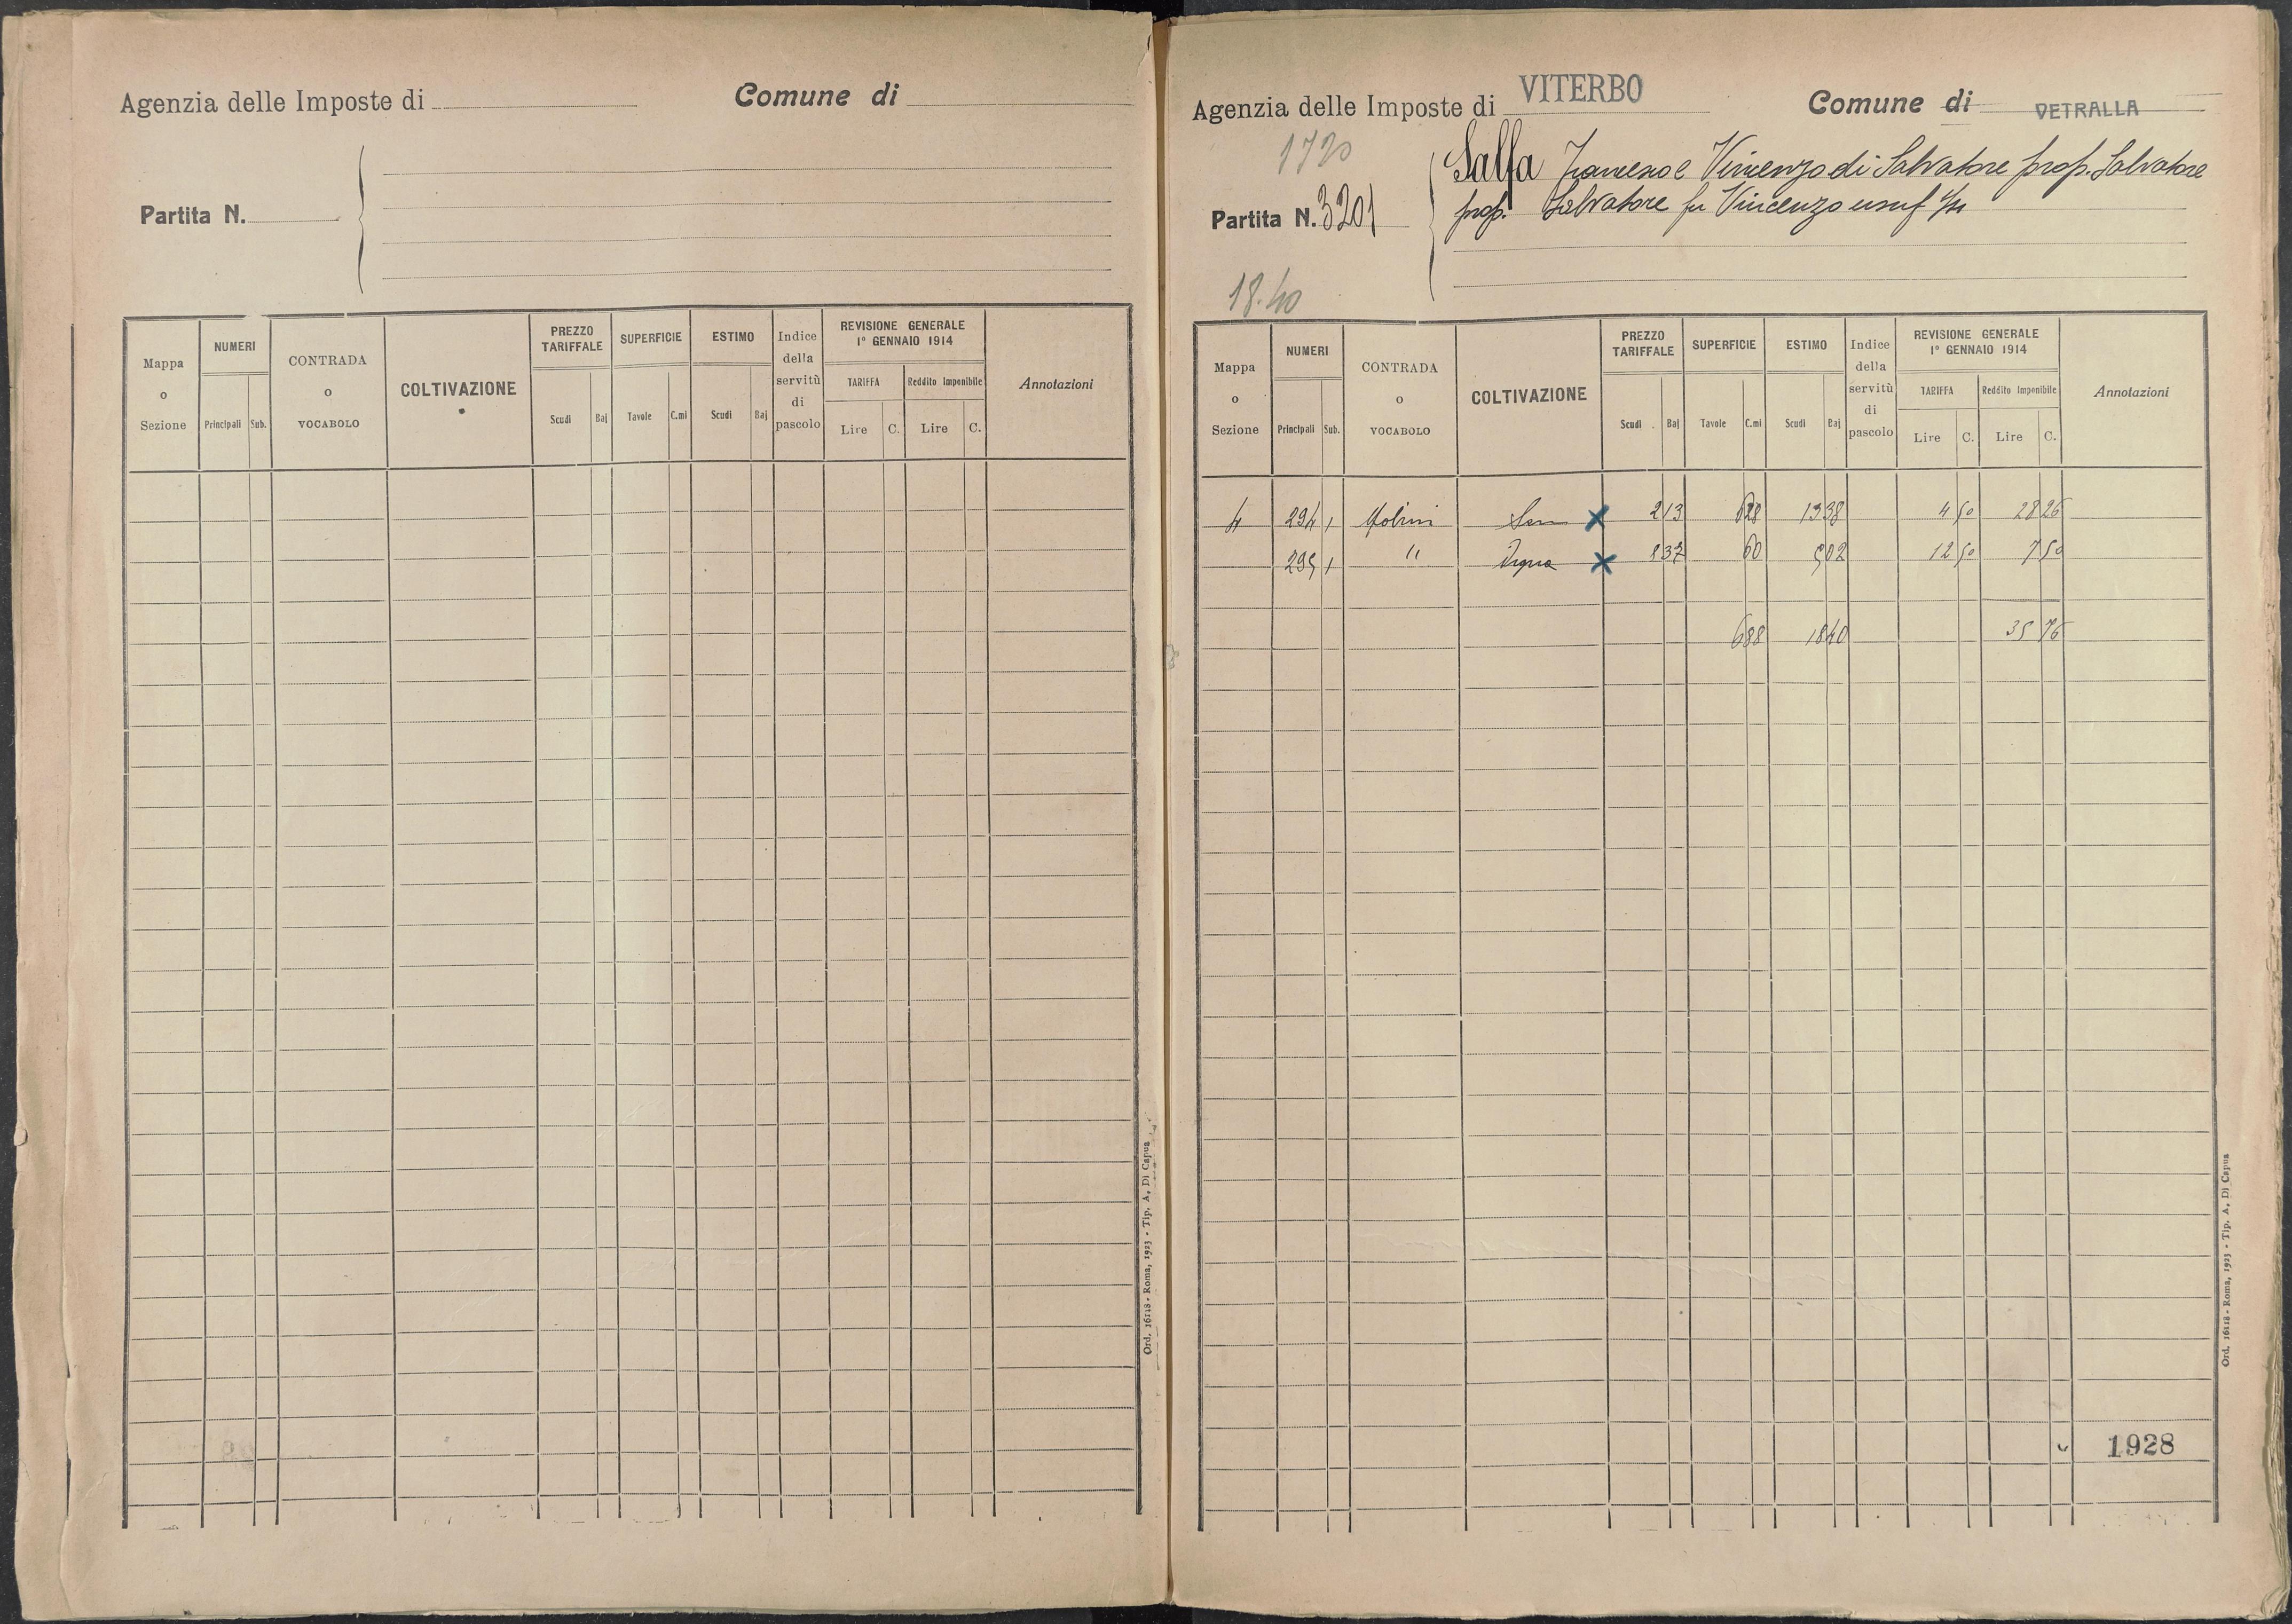 Agenzia delle Imposte di
Comune di
Partita N.
Mappa o Sezione
NUMERI
Principali Sub.
CONTRADA o VOCABOLO
COLTIVAZIONE
PREZZO TARIFFALE
Scudi Baj
SUPERFICIE
Tavole C.mi
ESTIMO
Scudi Baj
Indice della servitù di pascolo
REVISIONE GENERALE
1° GENNAIO 1914
TARIFFA Reddito Imponibile
Lire C. Lire C.
Annotazioni
Ord. 16118 - Roma, 1923 - Tip. A. Di Capua
Agenzia delle Imposte di VITERBO
Comune di VETRALLA
1720
Partita N. 3201
Salfa Francesco e Vincenzo di Salvatore prop. Salvatore
prop. Salvatore fu Vincenzo usuf
18.40
Mappa o Sezione
NUMERI
Principali Sub.
CONTRADA o VOCABOLO
COLTIVAZIONE
PREZZO TARIFFALE
Scudi Baj
SUPERFICIE
Tavole C.mi
ESTIMO
Scudi Baj
Indice della servitù di pascolo
REVISIONE GENERALE
1° GENNAIO 1914
TARIFFA Reddito Imponibile
Lire C. Lire C.
Annotazioni
4 294 1 Molini Sem X 2 13 628 13 38 4 50 28 26
295 1 " Vigna X 8 37 60 5 02 12 50 7 50
688 18 40 35 76
1928
Ord. 16118 - Roma, 1923 - Tip. A. Di Capua